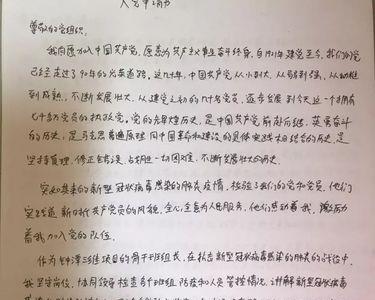 入党申请书
尊敬的党组织:
我自愿加入中国共产党,愿意为共产主义事业奋斗终身,自1921年建党至今,我们的党
已经走过了90年的光荣道路。这几十年,中国共产党从小到大、从弱到强、从幼稚
到成熟,不断发展壮大。从建党之初的几十名党员,逐步发展到今天这一个拥有
七千多万党员的执政党。党的辉煌历史,是中国共产党前赴后继、英勇奋斗
的历史;是马克思普遍原理同中国革命和建设的具体实践相结合的历史;是
坚持真理、修正错误、战胜一切困难、不断发展壮大的历史。
突如其来的新型冠状病毒感染的肺炎疫情,检验了我们的党和党员,他们
诠释新时代共产党员的风貌,全心全意为人民服务,他们感动着我,激励
着我加入党的队伍。
作为 项目的骨干班组长,在抗击新型冠状病毒感染的肺炎的战役中,
我坚守岗位,协同领导检查各个班组防疫和人员管控情况,讲解新型冠状病毒